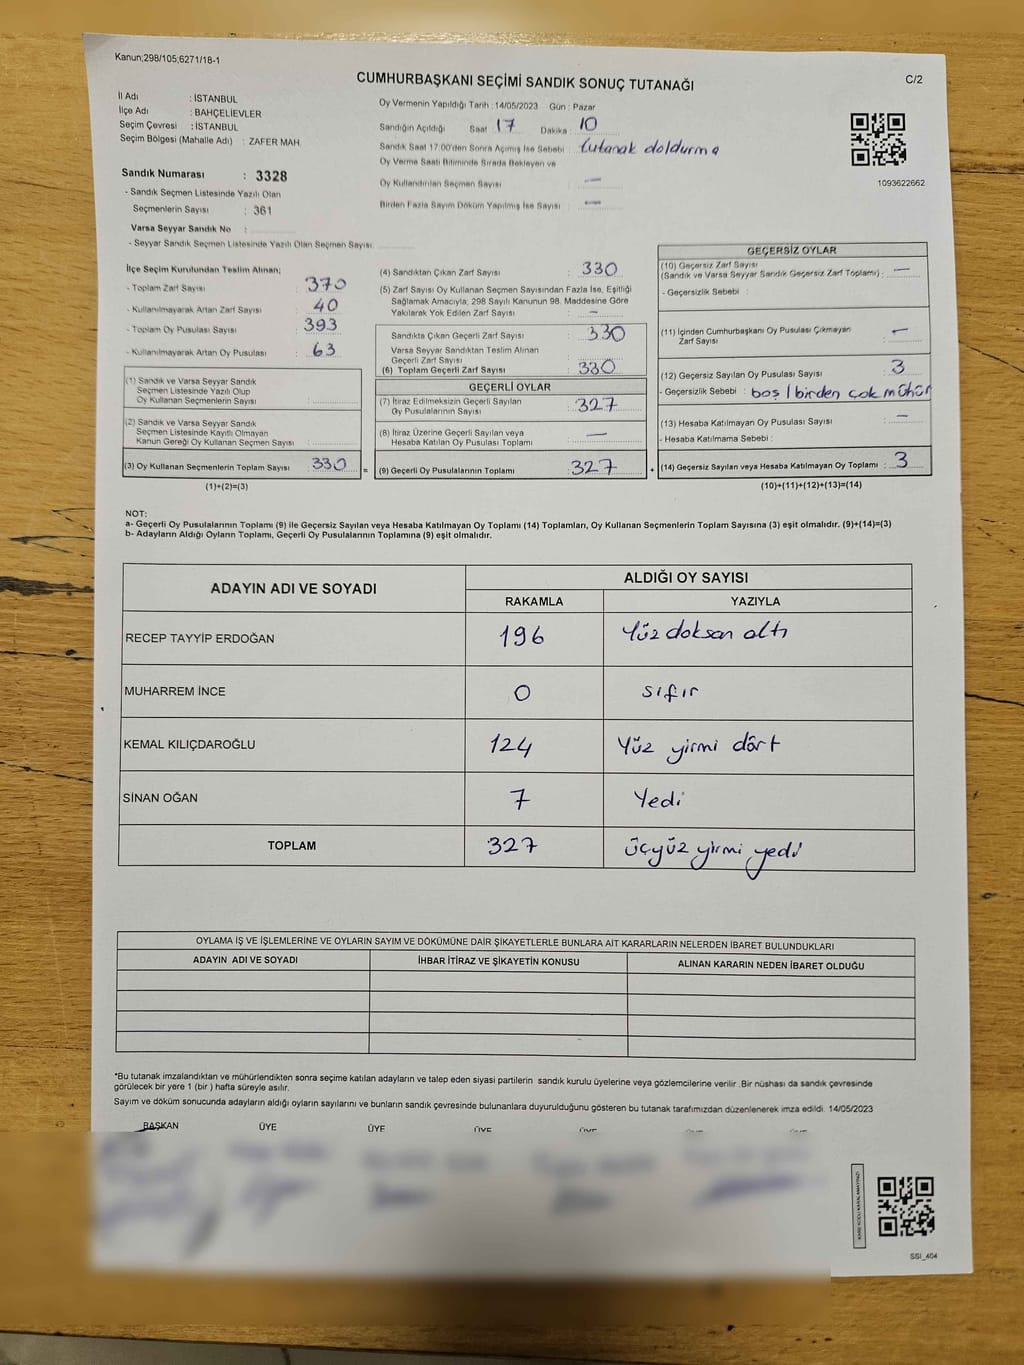 Kanun;298/105;6271/18-1
CUMHURBAŞKANI SEÇİMİ SANDIK SONUÇ TUTANAĞI
C/2
İl Adı : İSTANBUL
İlçe Adı : BAHÇELİEVLER
Seçim Çevresi : İSTANBUL
Seçim Bölgesi (Mahalle Adı) : ZAFER MAH.
Oy Vermenin Yapıldığı Tarih : 14/05/2023 Gün : Pazar
Sandığın Açıldığı Saat 17 Dakika : 10
Sandık Saat 17:00'den Sonra Açılmış İse Sebebi : tutanak doldurma
Oy Verme Saati Bitiminde Sırada Bekleyen ve
Oy Kullandırılan Seçmen Sayısı : —
Birden Fazla Sayım Döküm Yapılmış İse Sayısı : —
1093622662
Sandık Numarası : 3328
- Sandık Seçmen Listesinde Yazılı Olan
Seçmenlerin Sayısı : 361
Varsa Seyyar Sandık No :
- Seyyar Sandık Seçmen Listesinde Yazılı Olan Seçmen Sayısı:
İlçe Seçim Kurulundan Teslim Alınan;
- Toplam Zarf Sayısı : 370
- Kullanılmayarak Artan Zarf Sayısı : 40
- Toplam Oy Pusulası Sayısı : 393
- Kullanılmayarak Artan Oy Pusulası : 63
(1) Sandık ve Varsa Seyyar Sandık
Seçmen Listesinde Yazılı Olup
Oy Kullanan Seçmenlerin Sayısı :
(2) Sandık ve Varsa Seyyar Sandık
Seçmen Listesinde Kayıtlı Olmayan
Kanun Gereği Oy Kullanan Seçmen Sayısı :
(3) Oy Kullanan Seçmenlerin Toplam Sayısı : 330 =
(1)+(2)=(3)
(4) Sandıktan Çıkan Zarf Sayısı : 330
(5) Zarf Sayısı Oy Kullanan Seçmen Sayısından Fazla İse, Eşitliği
Sağlamak Amacıyla; 298 Sayılı Kanunun 98. Maddesine Göre
Yakılarak Yok Edilen Zarf Sayısı : —
Sandıkta Çıkan Geçerli Zarf Sayısı : 330
Varsa Seyyar Sandıktan Teslim Alınan
Geçerli Zarf Sayısı :
(6) Toplam Geçerli Zarf Sayısı : 330
GEÇERLİ OYLAR
(7) İtiraz Edilmeksizin Geçerli Sayılan
Oy Pusulalarının Sayısı : 327
(8) İtiraz Üzerine Geçerli Sayılan veya
Hesaba Katılan Oy Pusulası Toplamı : —
(9) Geçerli Oy Pusulalarının Toplamı : 327 +
GEÇERSİZ OYLAR
(10) Geçersiz Zarf Sayısı
(Sandık ve Varsa Seyyar Sandık Geçersiz Zarf Toplamı) : —
- Geçersizlik Sebebi :
(11) İçinden Cumhurbaşkanı Oy Pusulası Çıkmayan
Zarf Sayısı : —
(12) Geçersiz Sayılan Oy Pusulası Sayısı : 3
- Geçersizlik Sebebi : boş / birden çok mühür
(13) Hesaba Katılmayan Oy Pusulası Sayısı : —
- Hesaba Katılmama Sebebi :
(14) Geçersiz Sayılan veya Hesaba Katılmayan Oy Toplamı : 3
(10)+(11)+(12)+(13)=(14)
NOT:
a- Geçerli Oy Pusulalarının Toplamı (9) ile Geçersiz Sayılan veya Hesaba Katılmayan Oy Toplamı (14) Toplamları, Oy Kullanan Seçmenlerin Toplam Sayısına (3) eşit olmalıdır. (9)+(14)=(3)
b- Adayların Aldığı Oyların Toplamı, Geçerli Oy Pusulalarının Toplamına (9) eşit olmalıdır.
ADAYIN ADI VE SOYADI
ALDIĞI OY SAYISI
RAKAMLA YAZIYLA
RECEP TAYYİP ERDOĞAN 196 Yüz doksan altı
MUHARREM İNCE 0 sıfır
KEMAL KILIÇDAROĞLU 124 Yüz yirmi dört
SİNAN OĞAN 7 Yedi
TOPLAM 327 üçyüz yirmi yedi
OYLAMA İŞ VE İŞLEMLERİNE VE OYLARIN SAYIM VE DÖKÜMÜNE DAİR ŞİKAYETLERLE BUNLARA AİT KARARLARIN NELERDEN İBARET BULUNDUKLARI
ADAYIN ADI VE SOYADI İHBAR İTİRAZ VE ŞİKAYETİN KONUSU ALINAN KARARIN NEDEN İBARET OLDUĞU
*Bu tutanak imzalandıktan ve mühürlendikten sonra seçime katılan adayların ve talep eden siyasi partilerin sandık kurulu üyelerine veya gözlemcilerine verilir. Bir nüshası da sandık çevresinde
görülecek bir yere 1 (bir ) hafta süreyle asılır.
Sayım ve döküm sonucunda adayların aldığı oyların sayılarını ve bunların sandık çevresinde bulunanlara duyurulduğunu gösteren bu tutanak tarafımızdan düzenlenerek imza edildi. 14/05/2023
BAŞKAN ÜYE ÜYE ÜYE
KARE KODU KARALAMAYINIZ!
SSI_404